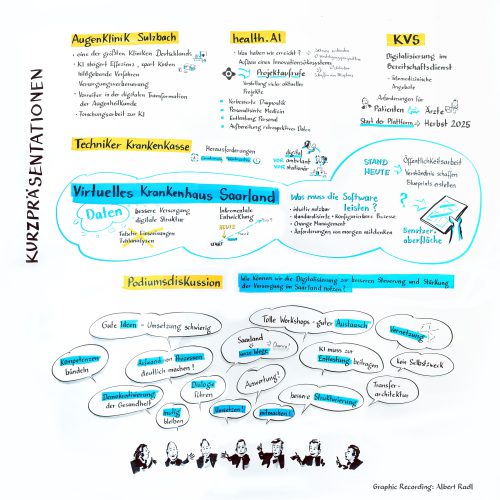 KURZPRÄSENTATIONEN
Augenklinik Sulzbach
• eine der größten Kliniken Deutschlands
• KI steigert Effizienz, spart Kosten
bildgebende Verfahren
Versorgungsverbesserung
• Vorreiter in der digitalen Transformation
der Augenheilkunde
• Forschungsarbeit zur KI
health.AI
• Was haben wir erreicht?
Aufbau eines Innovationsökosystems
Projektaufrufe
Vorstellung vieler aktueller
Projekte
Verbesserte Diagnostik
Personalisierte Medizin
Entlastung Personal
Aufbereitung retrospektiver Daten
KVS
Digitalisierung im
Bereitschaftsdienst
• telemedizinische
Angebote
Anforderungen für
Patienten Ärzte
Start der Plattform → Herbst 2025
Techniker Krankenkasse
Herausforderungen
digital
VOR ambulant
VOR stationär
Virtuelles Krankenhaus Saarland
Daten
bessere Versorgung
digitale Struktur
Inkrementelle
Entwicklung
HEUTE
Was muss die Software
leisten?
• intuitiv nutzbar
• standardisierte + konfigurierbare Prozesse
• Change Management
• Anforderungen von morgen mitdenken
STAND
HEUTE
Öffentlichkeitsarbeit
Verbündete schaffen
Blueprints erstellen
?
Benutzer-
oberfläche
Podiumsdiskussion
Wie können wir die Digitalisierung zur besseren Steuerung und Stärkung
der Versorgung im Saarland nutzen?
Gute Ideen - Umsetzung schwierig
Tolle Workshops - guter Austausch
Vernetzung
Kompetenzen
bündeln
Aufwand von Prozessen
deutlich machen!
Saarland
neue Wege
→ Chance!
KI muss zur
Entlastung beitragen
kein Selbstzweck
Demokratisierung
der Gesundheit
Dialoge
führen
Auswertung!
mutig
bleiben
Umsetzen!
mitmachen!
bessere Strukturierung
Transfer-
architektur
Graphic Recording: Albert Radl